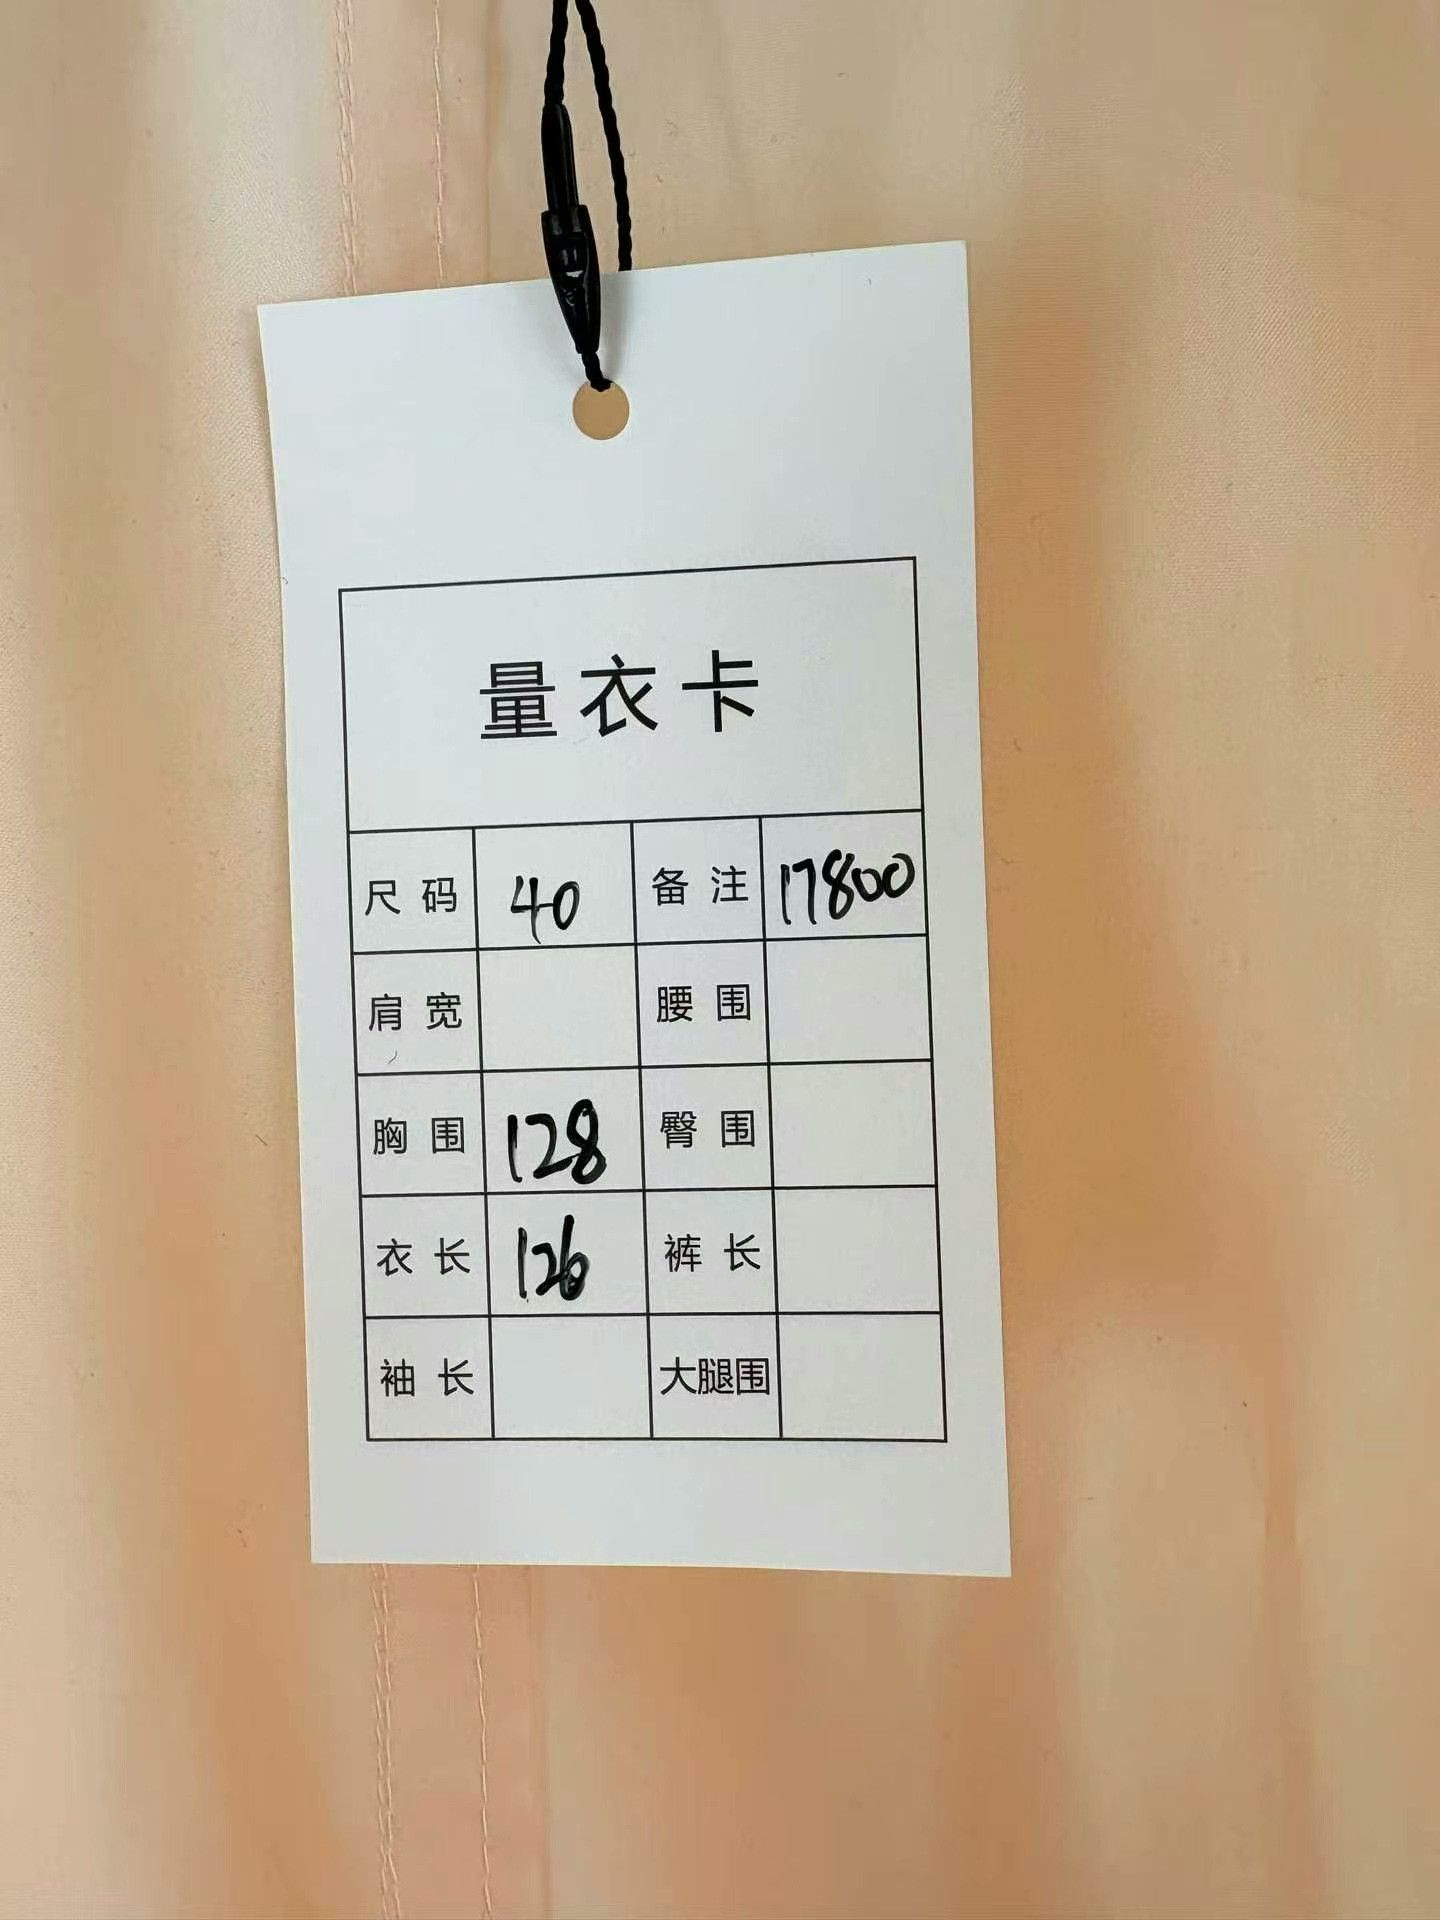 量衣卡
尺码 40 备注 17800
肩宽 腰围
胸围 128 臀围
衣长 126 裤长
袖长 大腿围